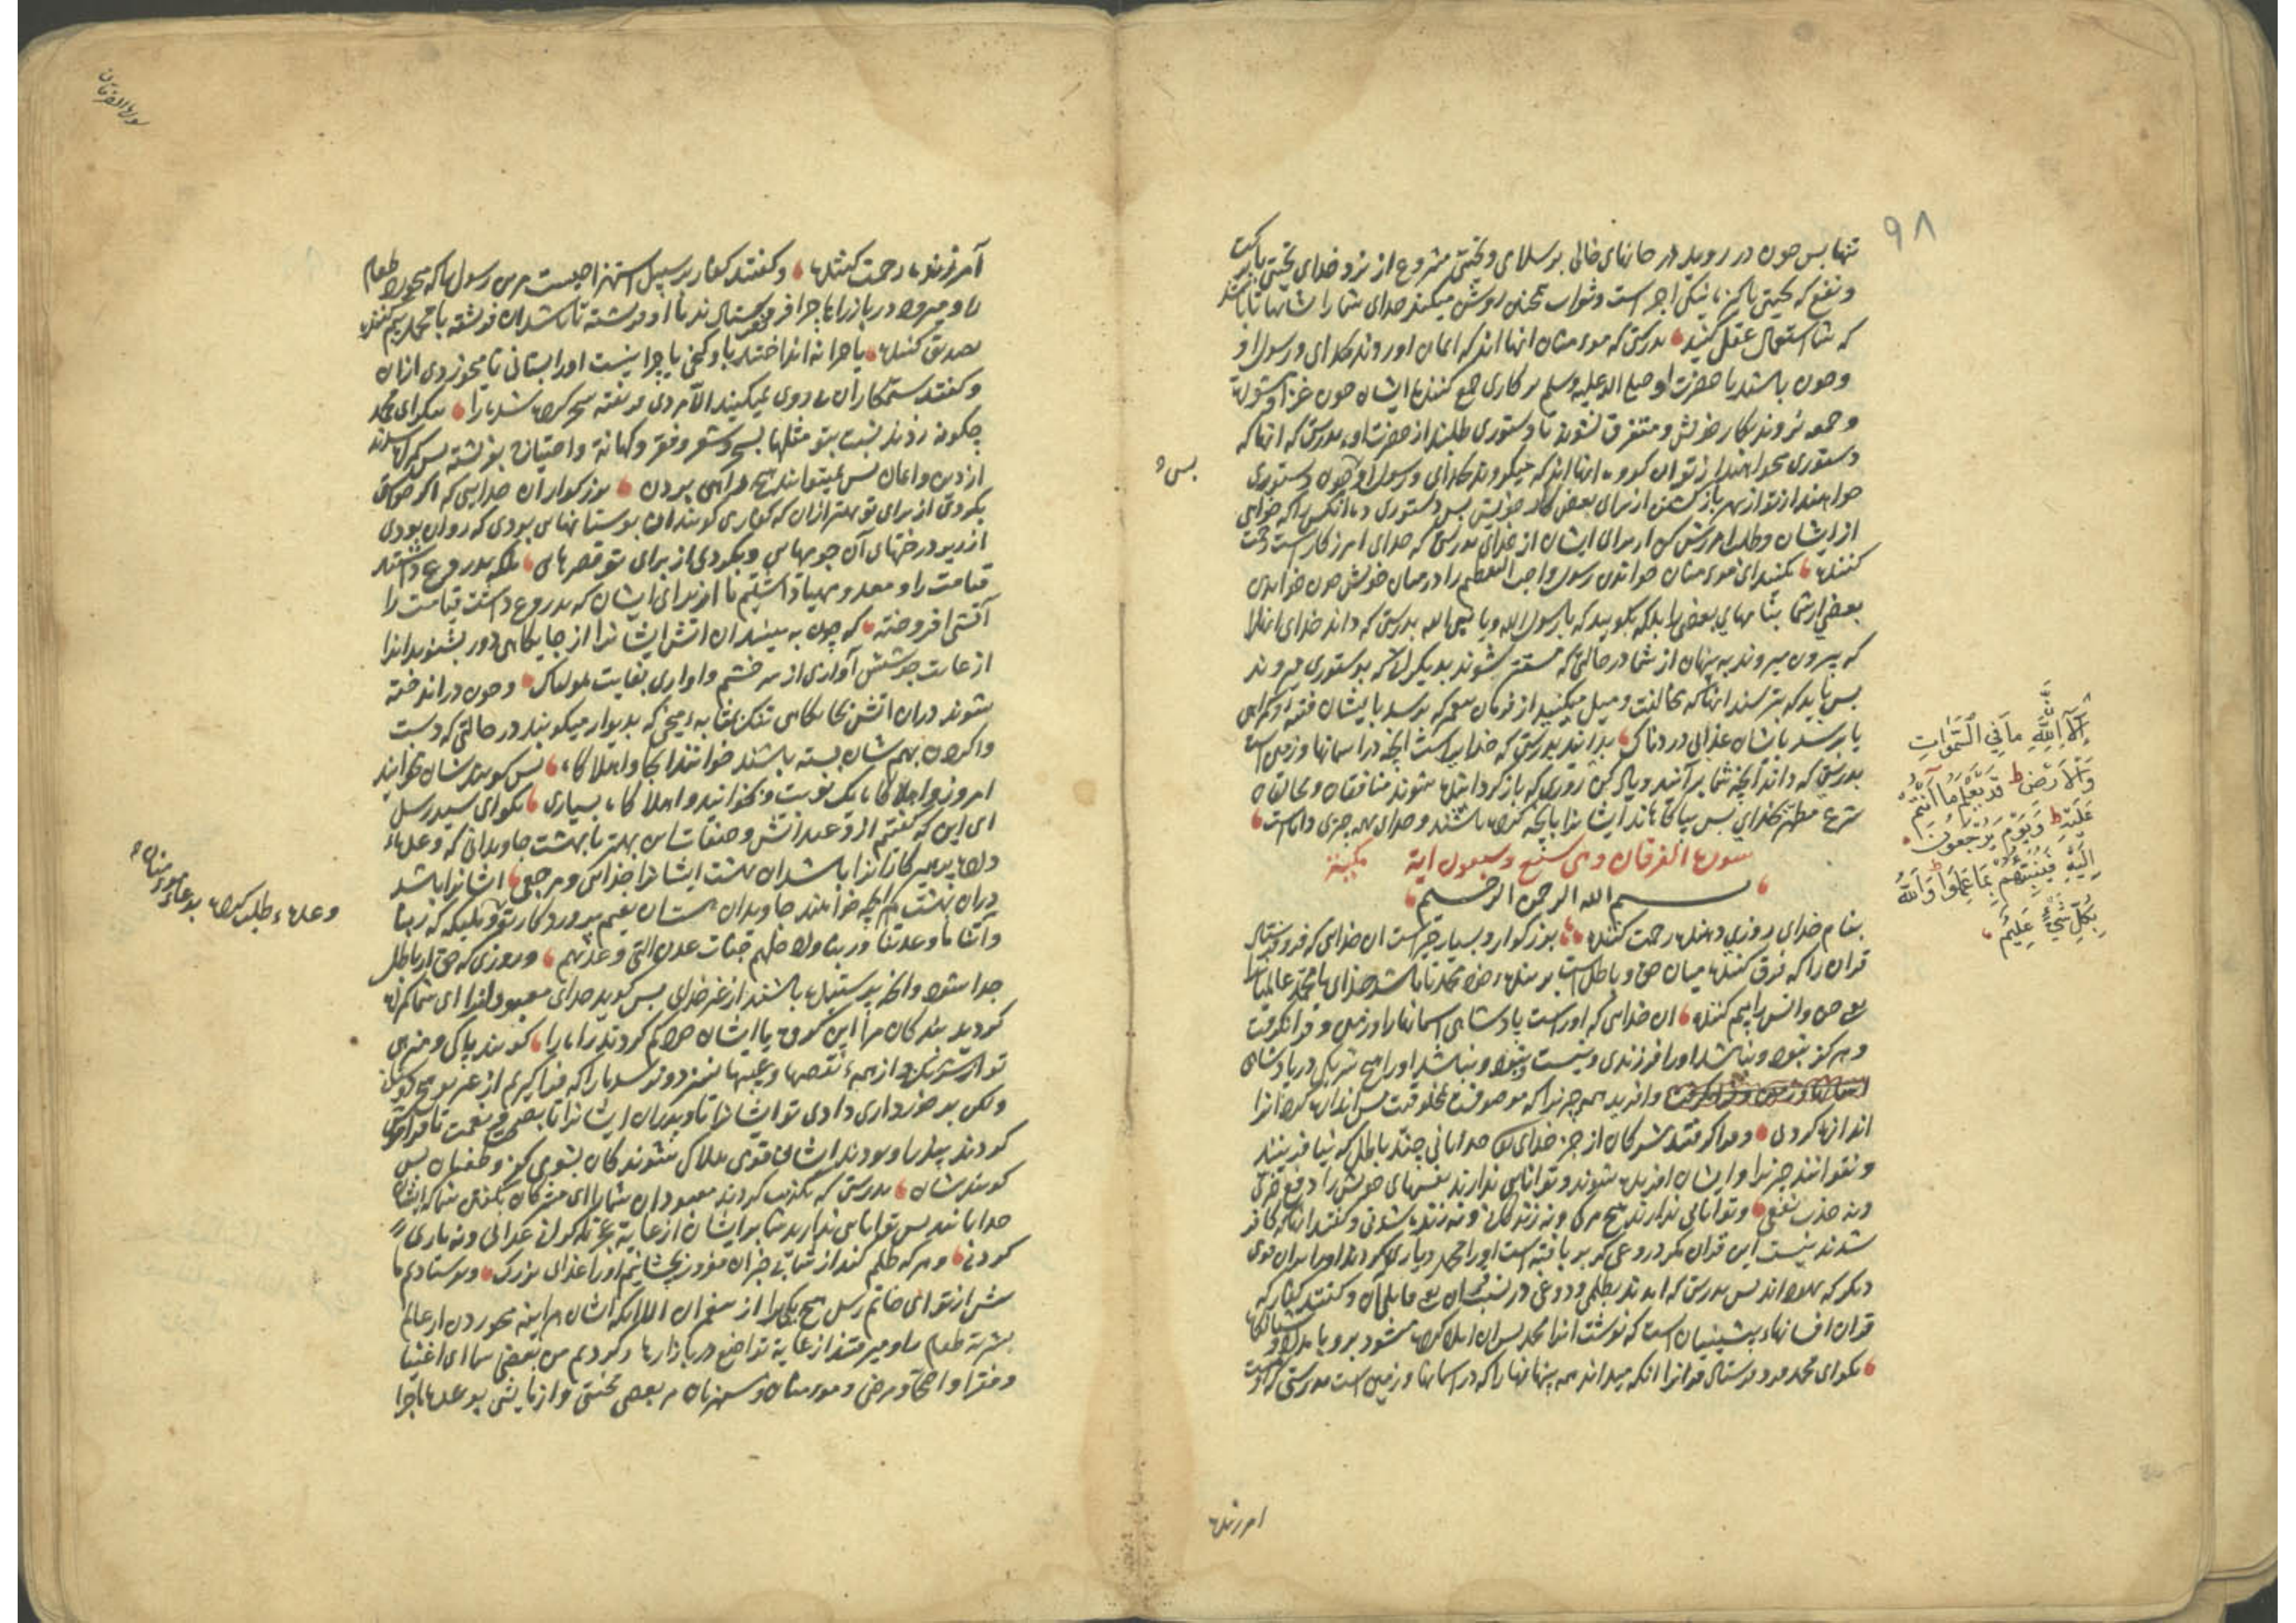 ٩٨
تنها بس چون در روید در خانهای خالی بر سلامی و تحیتی مشروع از نزد خدای تحیتی با برکت
و نفع که تحیتی پاکیزه نیکی اجر است و ثواب همچنین روشن میکند خدای شما را نشانها تا باشد
که شما استعمال عقل کنید بدرستی که مومنان آنها اند که ایمان آوردند بخدای و رسول او
و چون باشند با حضرت او صلی الله علیه وسلم بر کاری جمع کننده ایشان چون غزا و مشورت
و جمعه نروند بکار خویش و متفرق نشوند تا دستوری طلبند از حضرت او بدرستی که آنها که
دستوری میخواهند از تو ان گروه آنها اند که میگروند بخدای و رسول او چون دستوری
خواهند از تو از بهر باز گشتن از برای بعض کار خویش بس دستوری ده آنکس را که خواهی
از ایشان و طلب امرزش کن از برای ایشان از خدای بدرستی که خدای امرزکار است رحمت
کننده مکنید ای مومنان خواندن رسول واجب التعظیم را در میان خویش چون خواندن
بعضی از شما بنامهای بعض را بلکه بگویید که یا رسول الله و یا نبی الله بدرستی که داند خدای انها را
که بیرون میروند به پنهان از شما در حالتی که مستتر شوند بدیگران که بدستوری میروند
بس باید که بترسند انها که مخالفت و میل میکنید از فرمان پیغمبر که برسد بایشان فتنه و گمراهی
یا برسد بایشان عذابی دردناک بدانید بدرستی که خدایراست انچه در اسمانها و زمین است
بدرستی که داند آنچه شما برآنید و یاد کن روزی که باز گردانیده شوند منافقان و مخالفان
شرع مطهر بخدای بس بیاگاهاند ایشانرا بانچه کرده باشند و خدای بهمه چیزی داناست
سورة الفرقان وهی سبع وسبعون اية مكية
بسم الله الرحمن الرحيم
بنام خدای روزی دهنده رحمت کننده بزرگوار و بسیار خیر است ان خدایی که فرو فرستاد
قران را که فرق کننده میان حق و باطل است بر بنده خود محمد تا باشد خدای یا محمد عالمیانرا
یعنی جن و انس را بیم کننده ان خدایی که اوراست پادشاهی اسمانها را و زمین و فرا نگرفت
و هرگز نبود و نباشد اورا فرزندی و نیست و نبود و نباشد اورا هیچ شریکی در پادشاهی
و افرید همه چیز را که موصوف بمخلوقیت بس اندازه کرد انرا
اندازه کردنی و فرا گرفتند مشرکان از جز خدای خدایانی چند باطل که نیافرینند
و نتوانند چیزیرا و ایشان افریده شوند و توانایی ندارند نفسهای خویش را دفع ضرری
و نه جذب نفعی و توانایی ندارند هیچ مرگ و نه زندگانی و نه زنده شدنی و گفتند انها که کافر
شدند نیست این قران مگر دروغی که بر بافته است اورا محمد و یاری کردند اورا بران قومی
دیگر که یهود اند بس بدرستی که امدند بظلمی و دروغی و گفتند کفار که
قران افسانهاء پیشینیان است که نوشت انرا محمد بس ان املا کرده میشود برو بامداد و شبانگاه
بگو ای محمد فرو فرستاد قرانرا انکه میداند همه پنهانها را که در اسمانها و زمین است بدرستی که اوست
امرزنده
بس
إِلَّا إِنَّ لِلَّهِ مَا فِي السَّمٰوَاتِ
وَالْأَرْضِ ط قَدْ يَعْلَمُ مَا أَنْتُمْ
عَلَيْهِ ط وَيَوْمَ يُرْجَعُونَ
إِلَيْهِ فَيُنَبِّئُهُمْ بِمَا عَمِلُوا وَاللَّهُ
بِكُلِّ شَيْءٍ عَلِيمٌ
سورة الفرقان
آمرزنده رحمت کننده و گفتند کفار بر سبیل استهزا چیست مر این رسول را که میخورد طعام
را و میرود در بازارها چرا فرو نفرستادند با او فرشته تا باشد ان فرشته با محمد بیم کننده
تصدیق کننده یا چرا نه انداختند باو گنجی یا چرا نیست اورا بستانی تا میخوردی از ان
و گفتند ستمکاران پیروی نمیکنید الا مردی فریفته سحر کرده شده را بنگر ای محمد
چگونه زدند نسبت بتو مثلها بسحر و شعر و فقر و کهانة و احتیاج بفرشته بس گمراه شدند
از دین و ایمان بس نمیتوانند هیچ راهی بردن بزرگوار ان خدایی که اگر خواهد
بکردی از برای تو بهتر از ان که کفار میگویند ان بوستانهایی بودی که روان بودی
از زیر درختهای آن جویهایی و بکردی از برای تو قصرهایی بلکه بدروغ داشتند
قیامت را و معد و مهیا داشتیم ما از برای ایشان که بدروغ داشت قیامت را
آتشی افروخته که چون به بیند ان اتش ایشانرا از جایگاهی دور بشنوند انرا
از غایت جوشش آوازی از سر خشم و اوازی بغایت هولناک و چون در انداخته
شوند در ان اتش بجایگاهی تنگ بمثابه میخی که بدیوار میکوبند در حالتی که دست
و گردن بهم شان بسته باشند خوانند انجا واهلاکاه بس گویند شان مخوانید
امروز واهلاکاه یک نوبت و بخوانید واهلاکاه بسیاری بگو ای سید رسل
ای این که گفتم از وعید اتش و صفات اش بهتر یا بهشت جاودانی که وعده
داده پرهیزکارانرا باشد ان بهشت ایشانرا جزایی و مرجعی ایشانرا باشد
در ان بهشت هر انچه خواهند جاویدان هست ان نعیم پروردگار تو که ربنا
وآتنا ما وعدتنا و ربنا وادخلهم جنات عدن التی وعدتهم و روزی که حق از باطل
جدا شود وانچه پرستیده باشند از غیر خدای بس گوید خدای معبودانرا ای شما گمراه
کردید بندگان مرا این گروه یا ایشان گم کردند راه را گویند پاکی و منزهی
ولکن برخورداری دادی تو ایشانرا و پدران ایشانرا نعمت تا فراموش
کردند یاد را و بودند ایشان قومی هلاک شوندگان بشومی کفر و طغیان بس
گویندشان بدرستی که تکذیب کردند معبودان شما را ای مشرکان بگفتن شما که ایشان
خدایانند بس توانایی ندارید شما بر ایشان از غایت عجز نگردانی عذابی و نه یاری
کردنی و هر که ظلم کند از شما بچشانیم اورا عذابی بزرگ و نفرستادیم ما
پیش از تو ای خاتم رسل هیچ یکی را از پیغمبران الا انکه ایشان هراینه میخوردن از عالم
بشریة طعام را و میرفتند از غایة تواضع در بازارها و کردیم مر بعض شما ای اغنیا
و فقرا و اصحا و مرضی و مومنان
وعده طلب کرده بدعاء مومنان